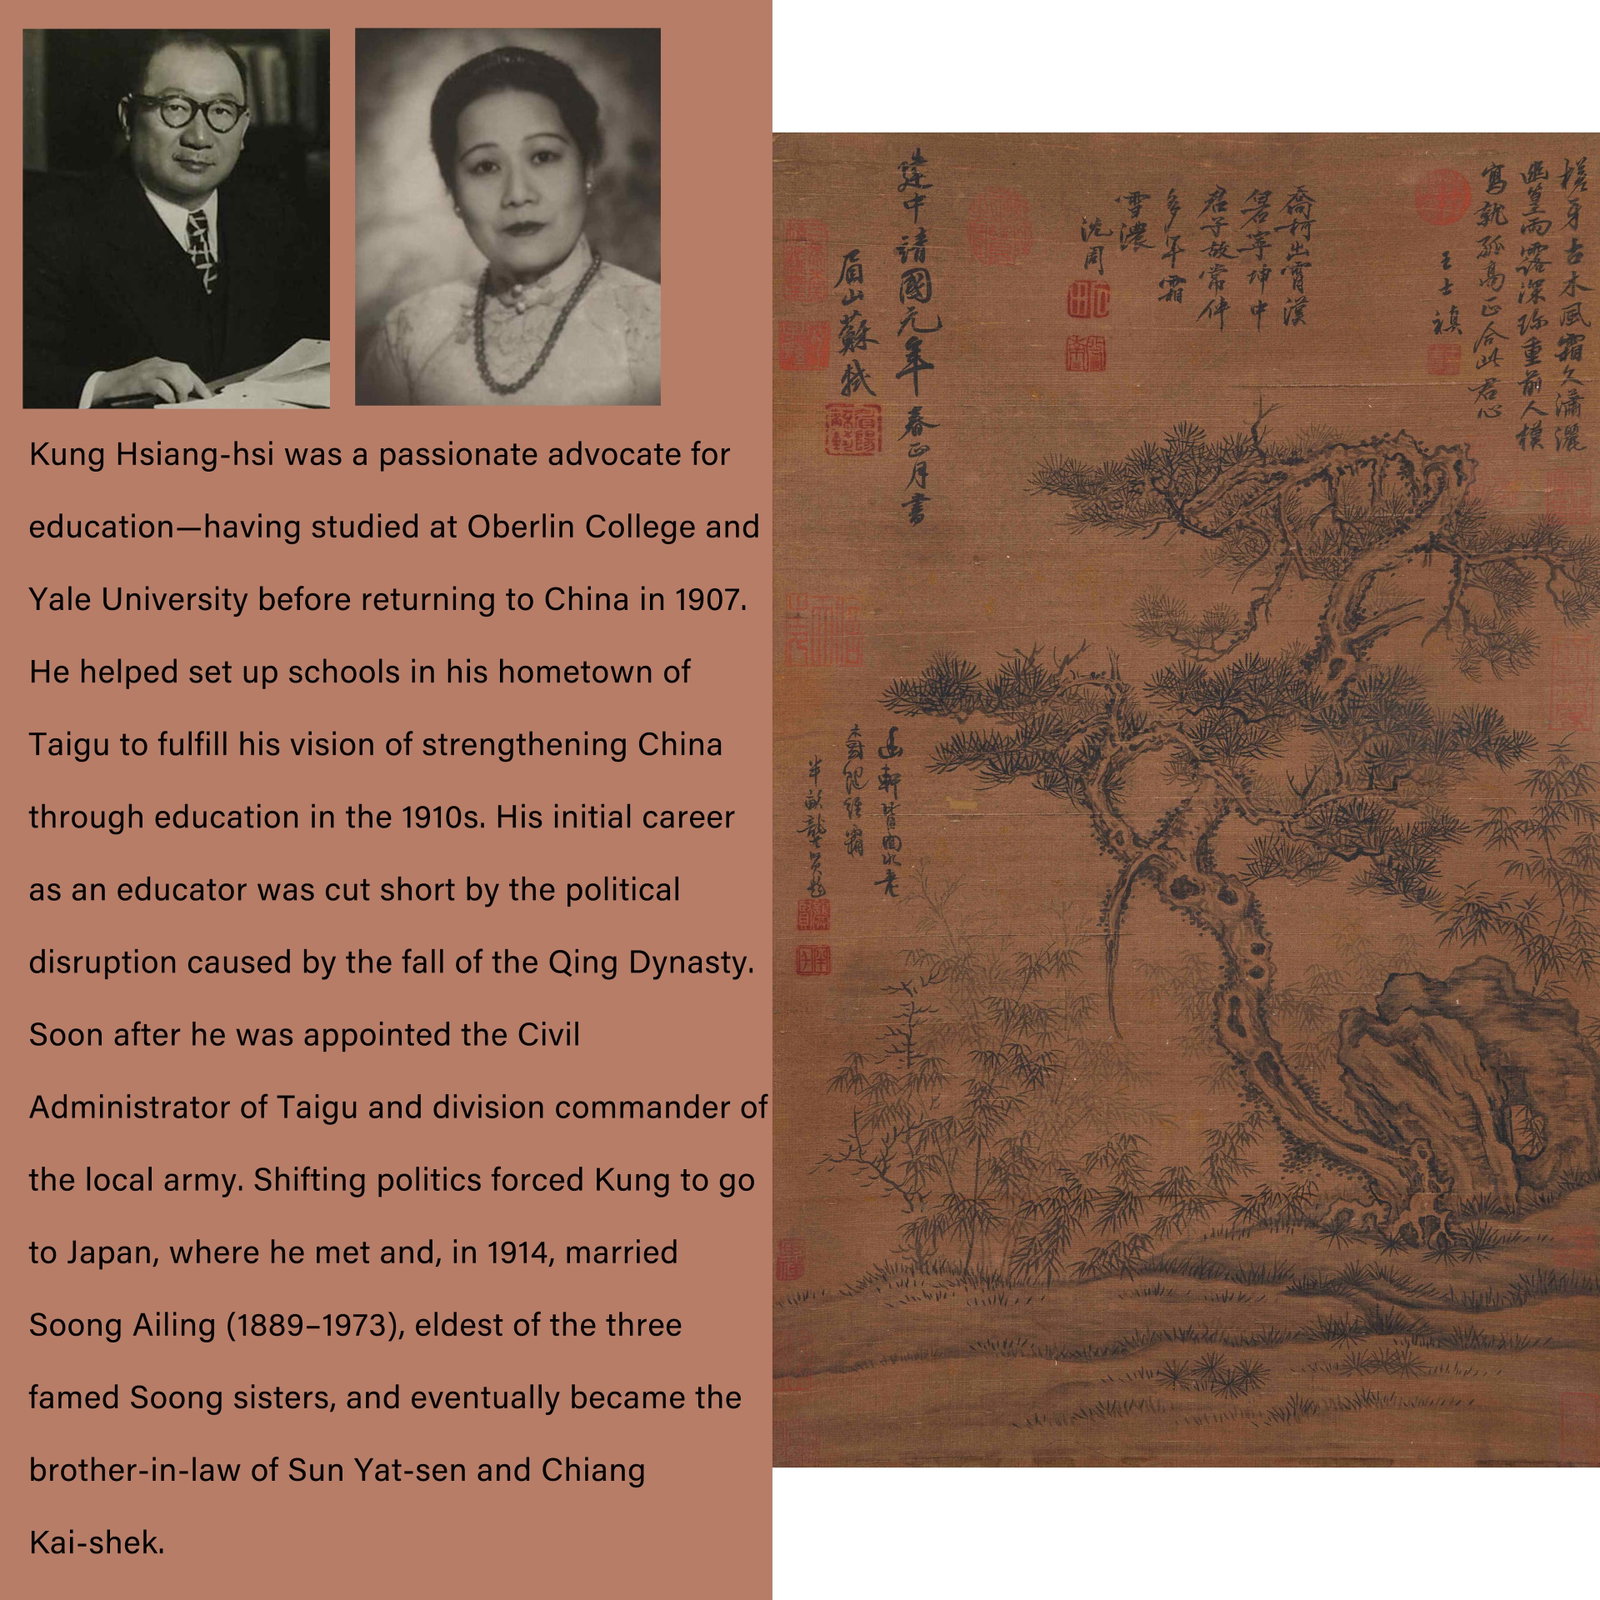 Kung Hsiang-hsi was a passionate advocate for
education—having studied at Oberlin College and
Yale University before returning to China in 1907.
He helped set up schools in his hometown of
Taigu to fulfill his vision of strengthening China
through education in the 1910s. His initial career
as an educator was cut short by the political
disruption caused by the fall of the Qing Dynasty.
Soon after he was appointed the Civil
Administrator of Taigu and division commander of
the local army. Shifting politics forced Kung to go
to Japan, where he met and, in 1914, married
Soong Ailing (1889–1973), eldest of the three
famed Soong sisters, and eventually became the
brother-in-law of Sun Yat-sen and Chiang
Kai-shek.
槎牙古木風霜久瀟灑
幽篁雨露深珍重前人模
寫就孤高正合此君心
王士禛
喬柯出霄漢
寧坤中
君子故常伴
多年霜
雪濃
沈周
建中靖國元年春正月書
眉山蘇軾